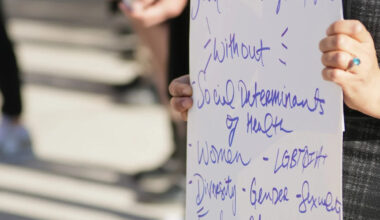 without
Social Determinants
of Health
- Women - LGBTQIA+
- Diversity - Gender - Sexuality